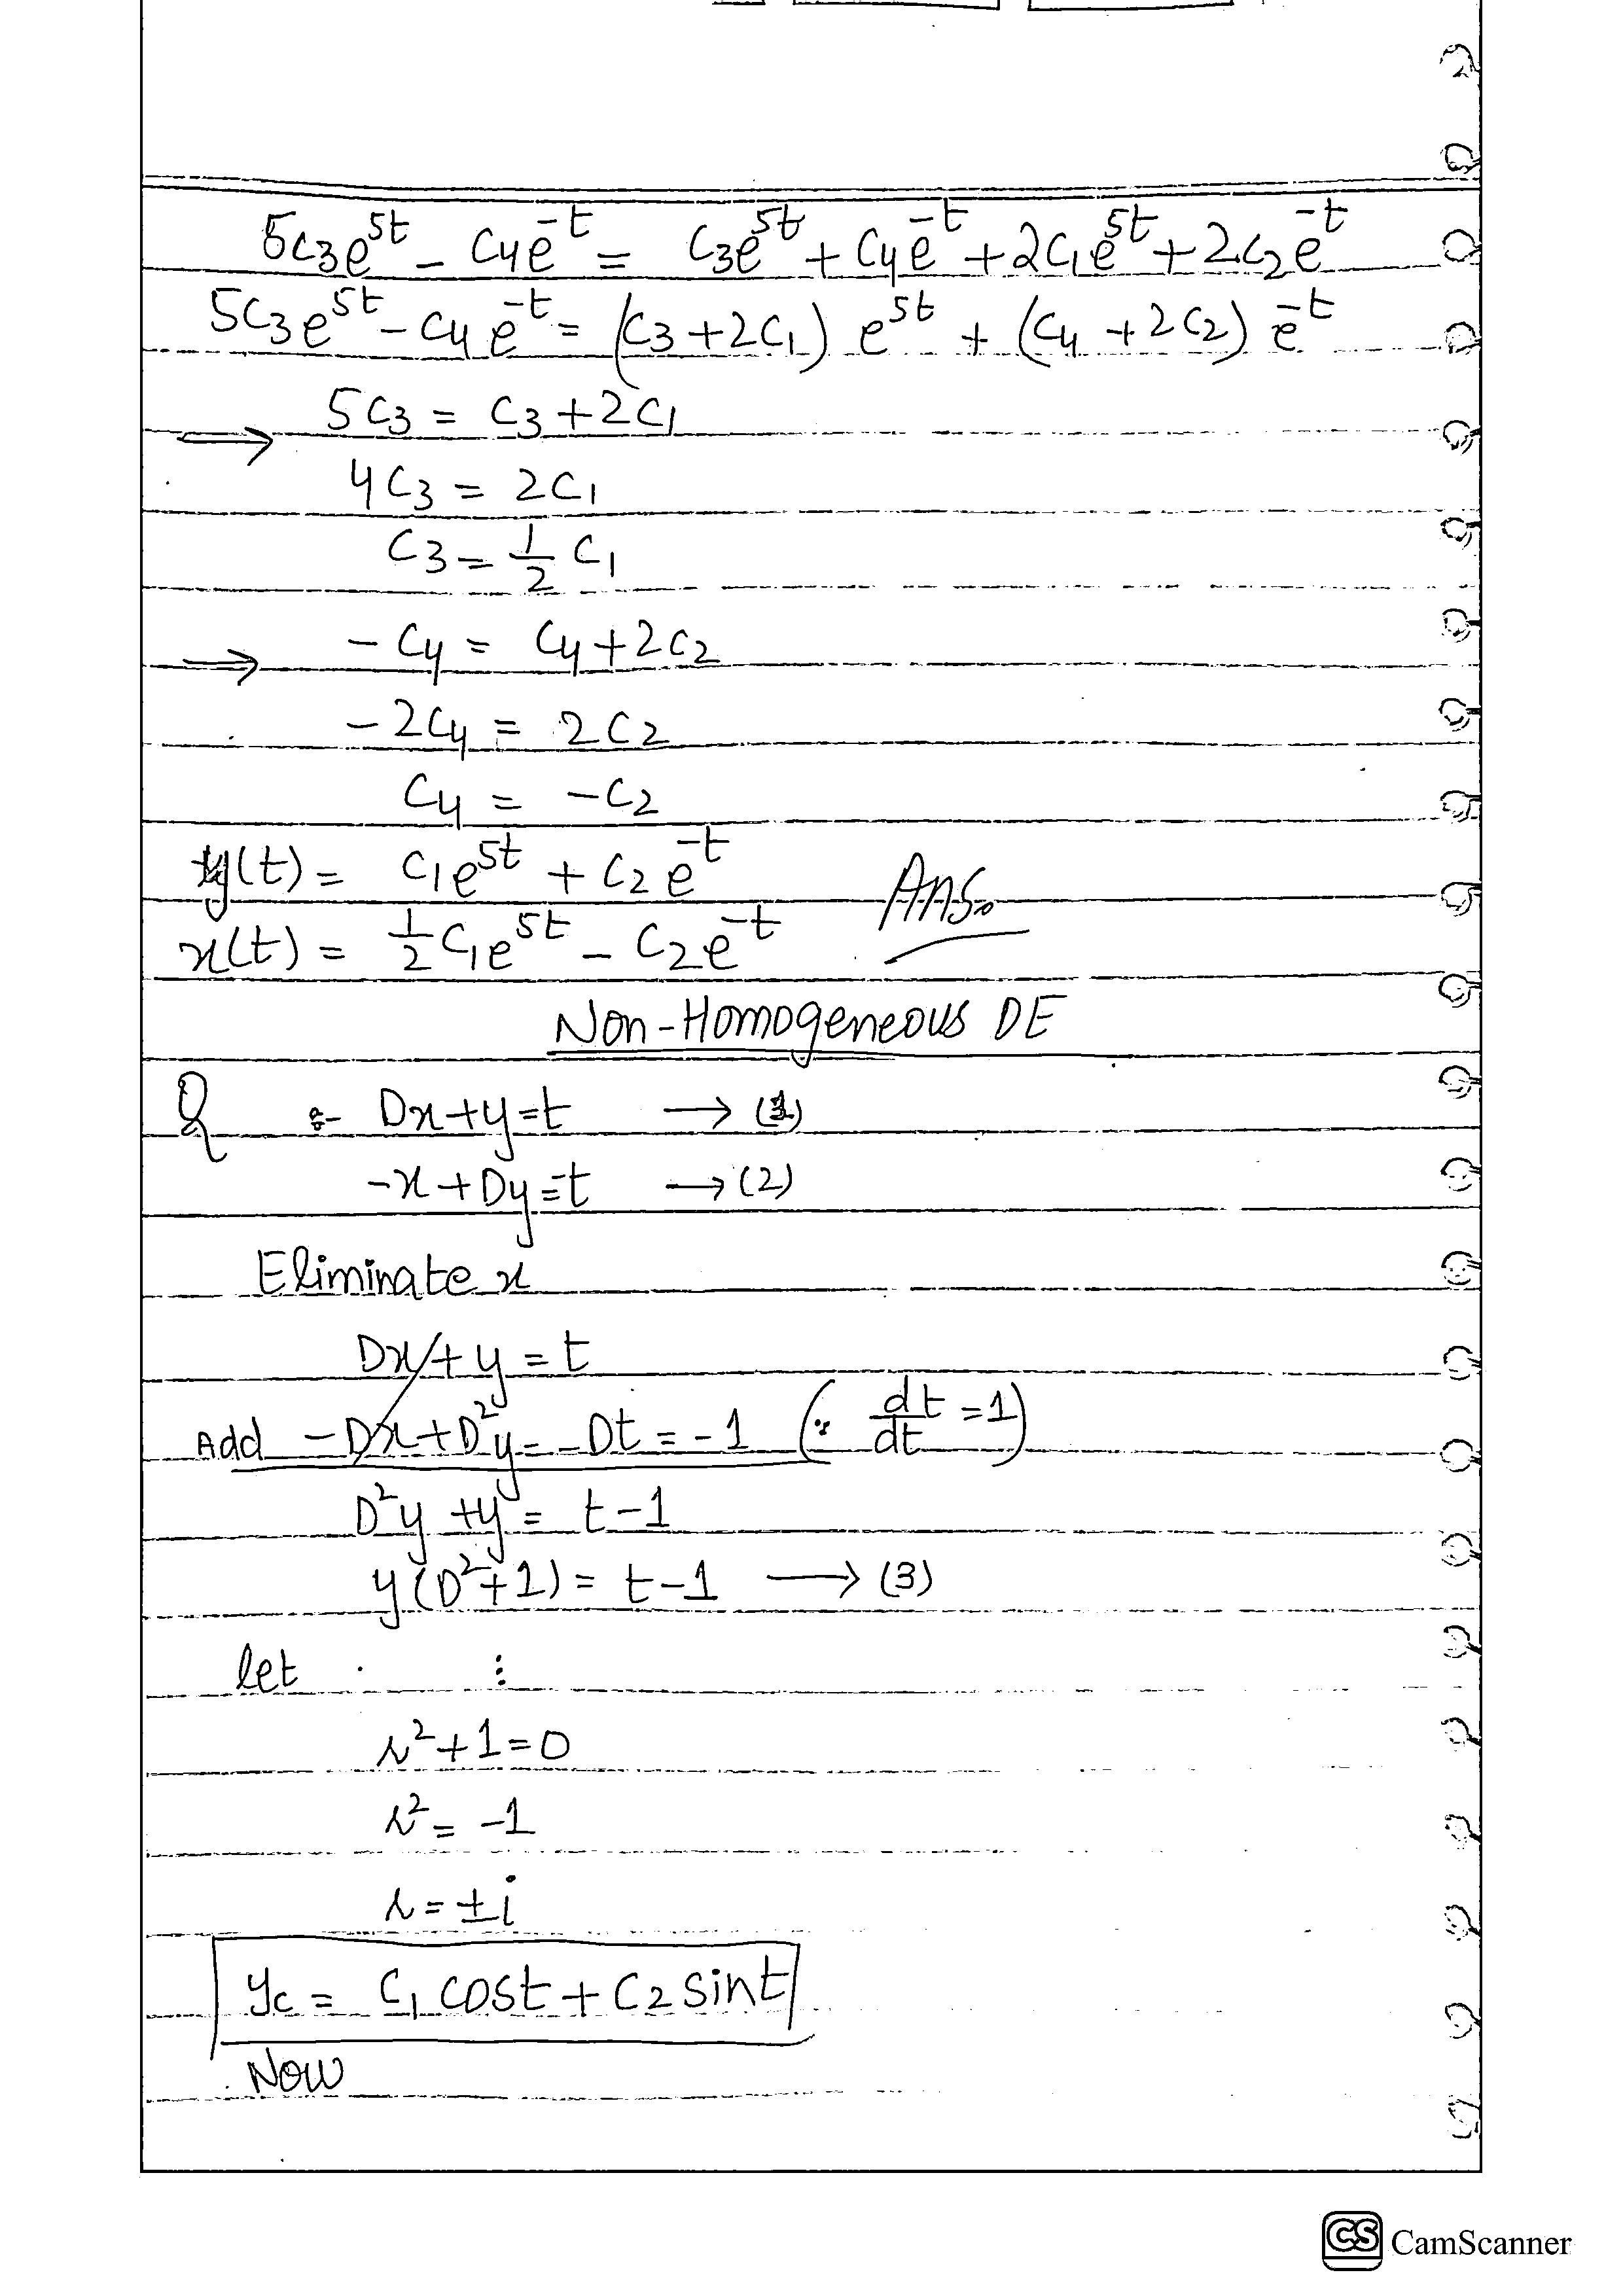 5c₃e⁵ᵗ − c₄e⁻ᵗ = c₃e⁵ᵗ + c₄e⁻ᵗ + 2c₁e⁵ᵗ + 2c₂e⁻ᵗ
5c₃e⁵ᵗ − c₄e⁻ᵗ = (c₃+2c₁) e⁵ᵗ + (c₄ + 2c₂) e⁻ᵗ
⟹ 5c₃ = c₃ + 2c₁
4c₃ = 2c₁
c₃ = 1/2 c₁
⟹ −c₄ = c₄ + 2c₂
−2c₄ = 2c₂
c₄ = −c₂
y(t) = c₁e⁵ᵗ + c₂e⁻ᵗ
Ans.
x(t) = 1/2 c₁e⁵ᵗ − c₂e⁻ᵗ
Non-Homogeneous DE
Q :- Dx+y=t → (1)
-x+Dy=-t → (2)
Eliminate x
Dx+y=t
Add −Dx+D²y=−Dt=−1 (∵ dt/dt =1)
D²y +y = t−1
y(D²+1) = t−1 → (3)
let :
r²+1=0
r² = −1
r = ±i
yc = c₁ cost + c₂ sint
Now
CS CamScanner